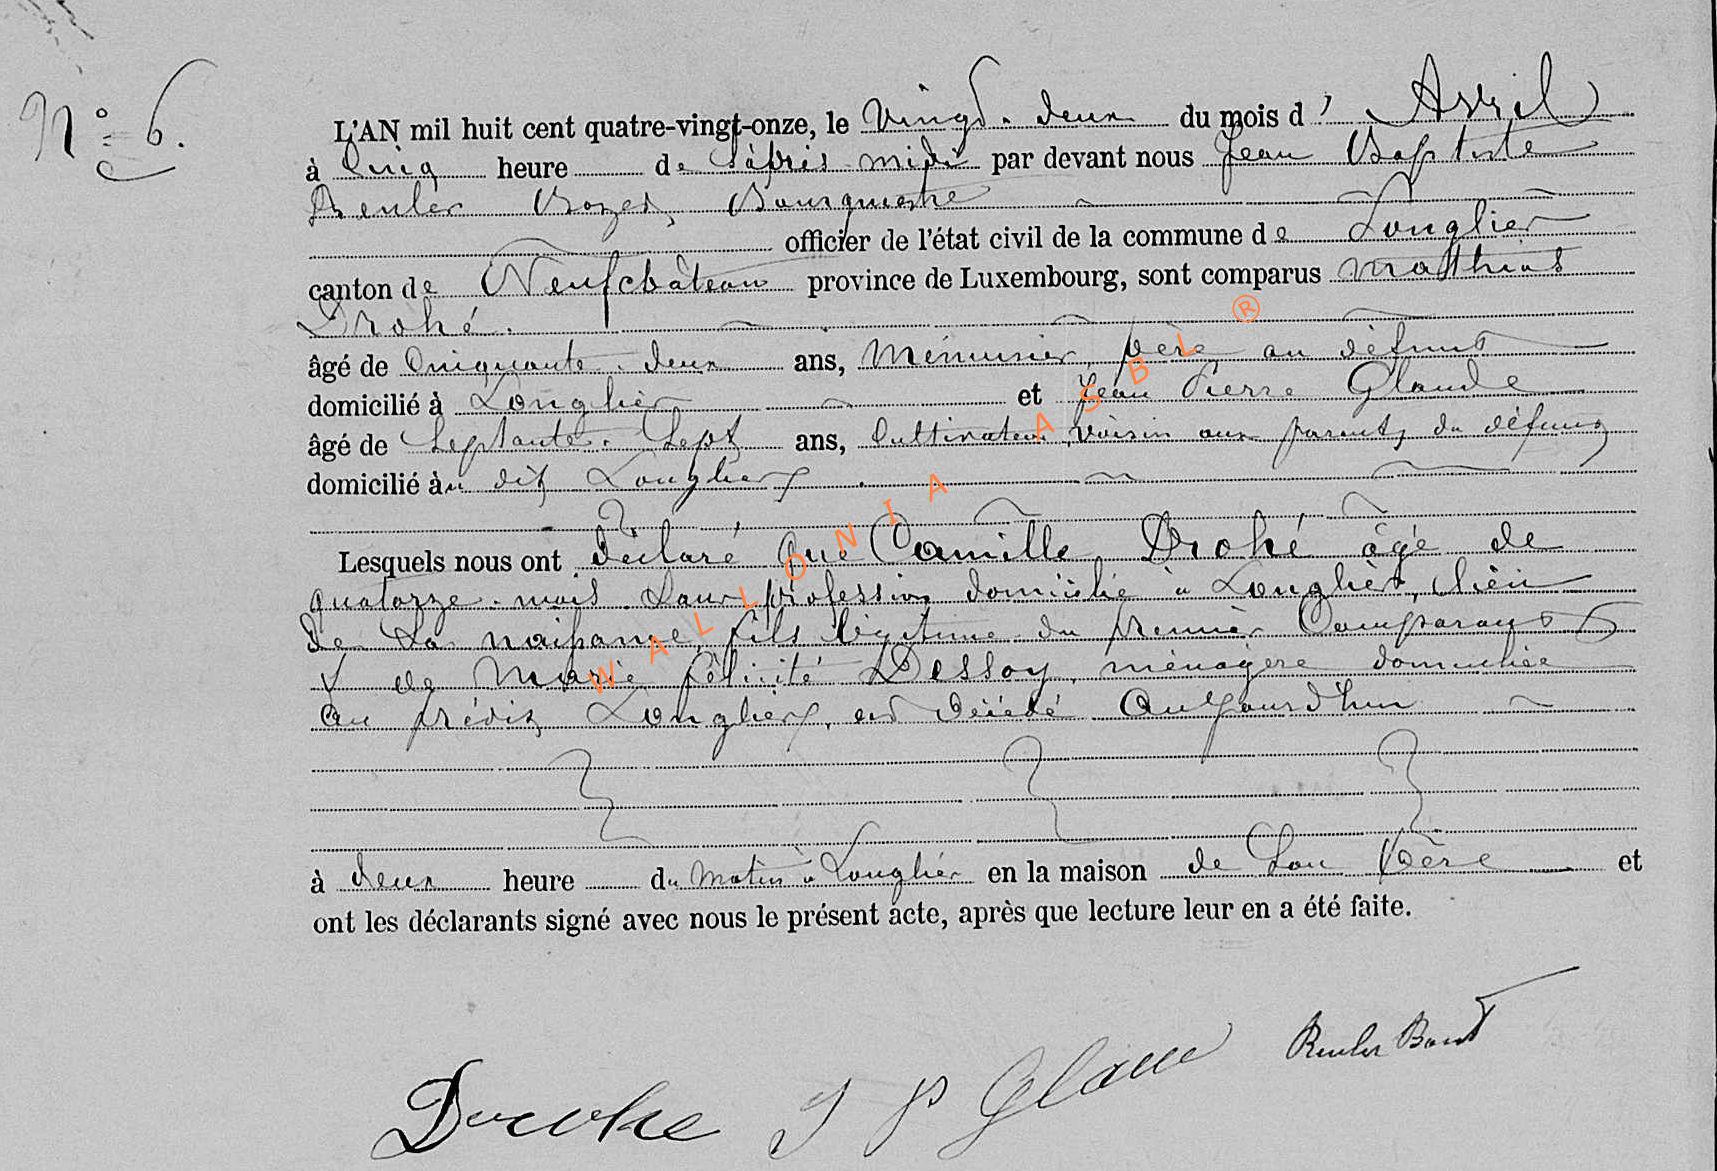 N° 6.
L'AN mil huit cent quatre-vingt-onze, le Vingt-deux du mois d' Avril
à Cinq heure de L'après midi par devant nous Jean Baptiste
Reuler Bourgmestre
officier de l'état civil de la commune de Longlier
canton de Neufchâteau province de Luxembourg, sont comparus Matthias
Drohé.
âgé de Cinquante-deux ans, Menuisier, père au défunt
domicilié à Longlier et Jean Pierre Glaude
âgé de Septante-Sept ans, Cultivateur, voisin aux parents du défunt
domicilié au dit Longlier
Lesquels nous ont déclaré que Camille Drohé âgé de
quatorze mois Sans profession domicilié à Longlier, lieu
de Sa naissance, fils légitime du premier Comparant
& de Marie félicité Dessoy, ménagère domiciliée
au prédit Longlier, est décédé Aujourd'hui
à deux heure du Matin à Longlier en la maison de Son Père et
ont les déclarants signé avec nous le présent acte, après que lecture leur en a été faite.
Drohe J P Glaude Reuler
WALLONIA ASBL ®